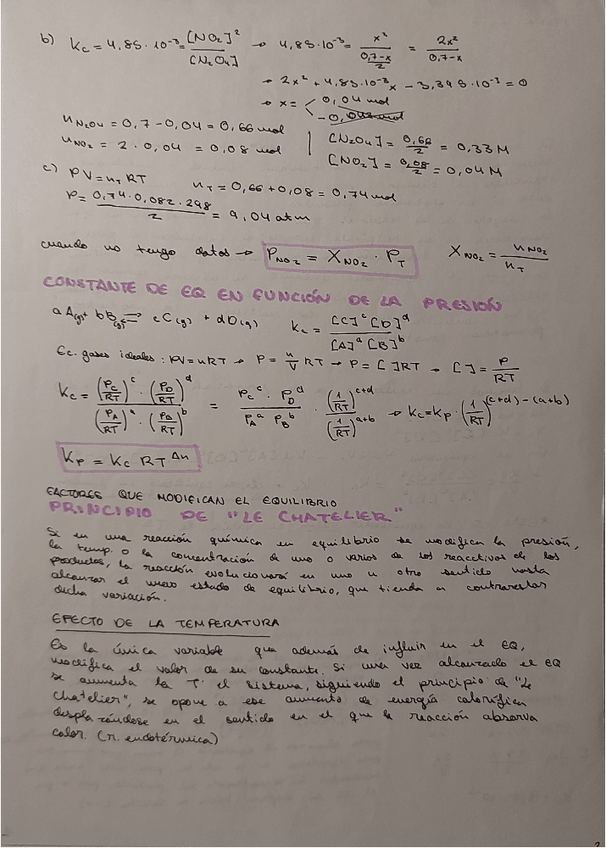 b) Kc = 4,85·10⁻³ = [NO₂]² / [N₂O₄] → 4,85·10⁻³ = x² / (0,7-x / 2) = 2x² / 0,7-x
→ 2x² + 4,85·10⁻³x - 3,395·10⁻³ = 0
→ x = < 0,04 mol
n N₂O₄ = 0,7 - 0,04 = 0,66 mol | [N₂O₄] = 0,66 / 2 = 0,33 M
n NO₂ = 2 · 0,04 = 0,08 mol | [NO₂] = 0,08 / 2 = 0,04 M
c) PV = nT RT nT = 0,66 + 0,08 = 0,74 mol
P = 0,74 · 0,082 · 298 / 2 = 9,04 atm
cuando no tengo datos → P NO₂ = X NO₂ · PT X NO₂ = n NO₂ / nT
CONSTANTE DE EQ EN FUNCIÓN DE LA PRESIÓN
a A(g) + b B(g) ⇌ c C(g) + d D(g) Kc = [C]ᶜ [D]ᵈ / [A]ᵃ [B]ᵇ
Ec. gases ideales: PV = nRT → P = n/V RT → P = [ ]RT → [ ] = P / RT
Kc = (Pc/RT)ᶜ · (PD/RT)ᵈ / (PA/RT)ᵃ · (PB/RT)ᵇ = Pcᶜ · PDᵈ / PAᵃ PBᵇ · (1/RT)ᶜ⁺ᵈ / (1/RT)ᵃ⁺ᵇ → Kc = Kp · (1/RT)⁽ᶜ⁺ᵈ⁾⁻⁽ᵃ⁺ᵇ⁾
Kp = Kc RT^Δn
FACTORES QUE MODIFICAN EL EQUILIBRIO
PRINCIPIO DE "LE CHATELIER"
Si en una reacción química en equilibrio se modifica la presión,
la temp. o la concentración de uno o varios de los reactivos de los
productos, la reacción evolucionará en uno u otro sentido hasta
alcanzar el nuevo estado de equilibrio, que tienda a contrarestar
dicha variación.
EFECTO DE LA TEMPERATURA
Es la única variable que además de influir en el EQ,
modifica el valor de su constante. Si una vez alcanzado el EQ
se aumenta la T° el sistema, siguiendo el principio de "Le
Chatelier", se opone a ese aumento de energía calorífica
desplazándose en el sentido en el que la reacción absorva
calor. (r. endotérmica)